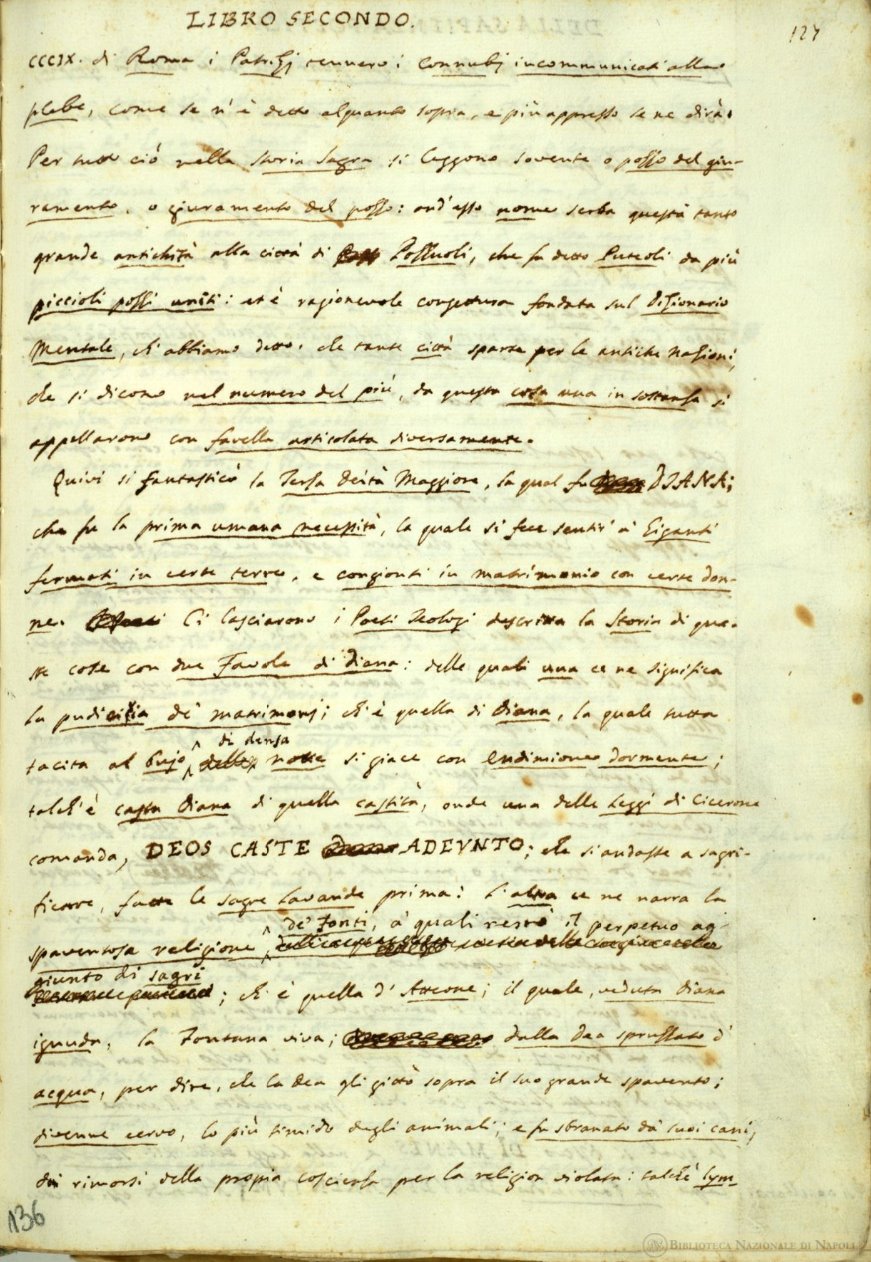 LIBRO SECONDO.
127
CCCIX. di Roma i Patrizj tennero i Connubj incommunicati alla
plebe, come se n'è detto alquanto sopra, e più appresso se ne dirà.
Per tutto ciò nella storia sagra si leggono sovente o pozzo del giu-
ramento, o giuramento del pozzo: ond'esso nome serba questa tanto
grande antichità alla città di Pozzuoli, che fu detto Puteoli da più
piccioli pozzi uniti: et è ragionevole congettura fondata sul Dizionario
Mentale, ch'abbiamo detto, che tante città sparse per le antiche nazioni,
che si dicono nel numero del più, da questa cosa una in sostanza si
appellarono con favella articolata diversamente.
Quivi si fantasticò la Terza Deità Maggiore, la qual fu DIANA;
che fu la prima umana necessità, la quale si fece sentir' a' Giganti
fermati in certe terre, e congionti in matrimonio con certe don-
ne. Ci lasciarono i Poeti Teologi descritta la Storia di que-
ste cose con due Favole di Diana: delle quali una ce ne significa
la pudicizia de' matrimonj; ch'è quella di Diana, la quale tutta
di densa
tacita al bujo notte si giace con Endimione dormente;
talch'è casta Diana di quella castità, onde una delle Leggi di Cicerone
comanda, DEOS CASTE ADEVNTO; che si andasse a sagri-
ficare, fatte le sagre lavande prima: L'altra ce ne narra la
de' Fonti, a' quali restò il perpetuo ag-
spaventosa religione
giunto di sagri
; ch'è quella d'Atteone; il quale, veduta Diana
ignuda, la Fontana viva; dalla Dea spruzzato d'
acqua, per dire, che la Dea gli gittò sopra il suo grande spavento;
divenne cervo, lo più timido degli animali; e fu sbranato da' suoi cani,
dai rimorsi della propia coscienza per la religion violata: talchè lym-
136
BIBLIOTECA NAZIONALE DI NAPOLI